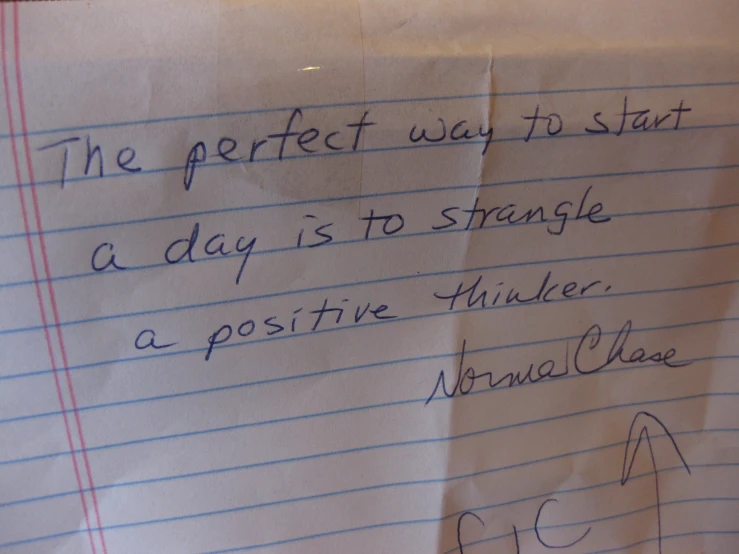 The perfect way to start
a day is to strangle
a positive thinker.
Norma Chase